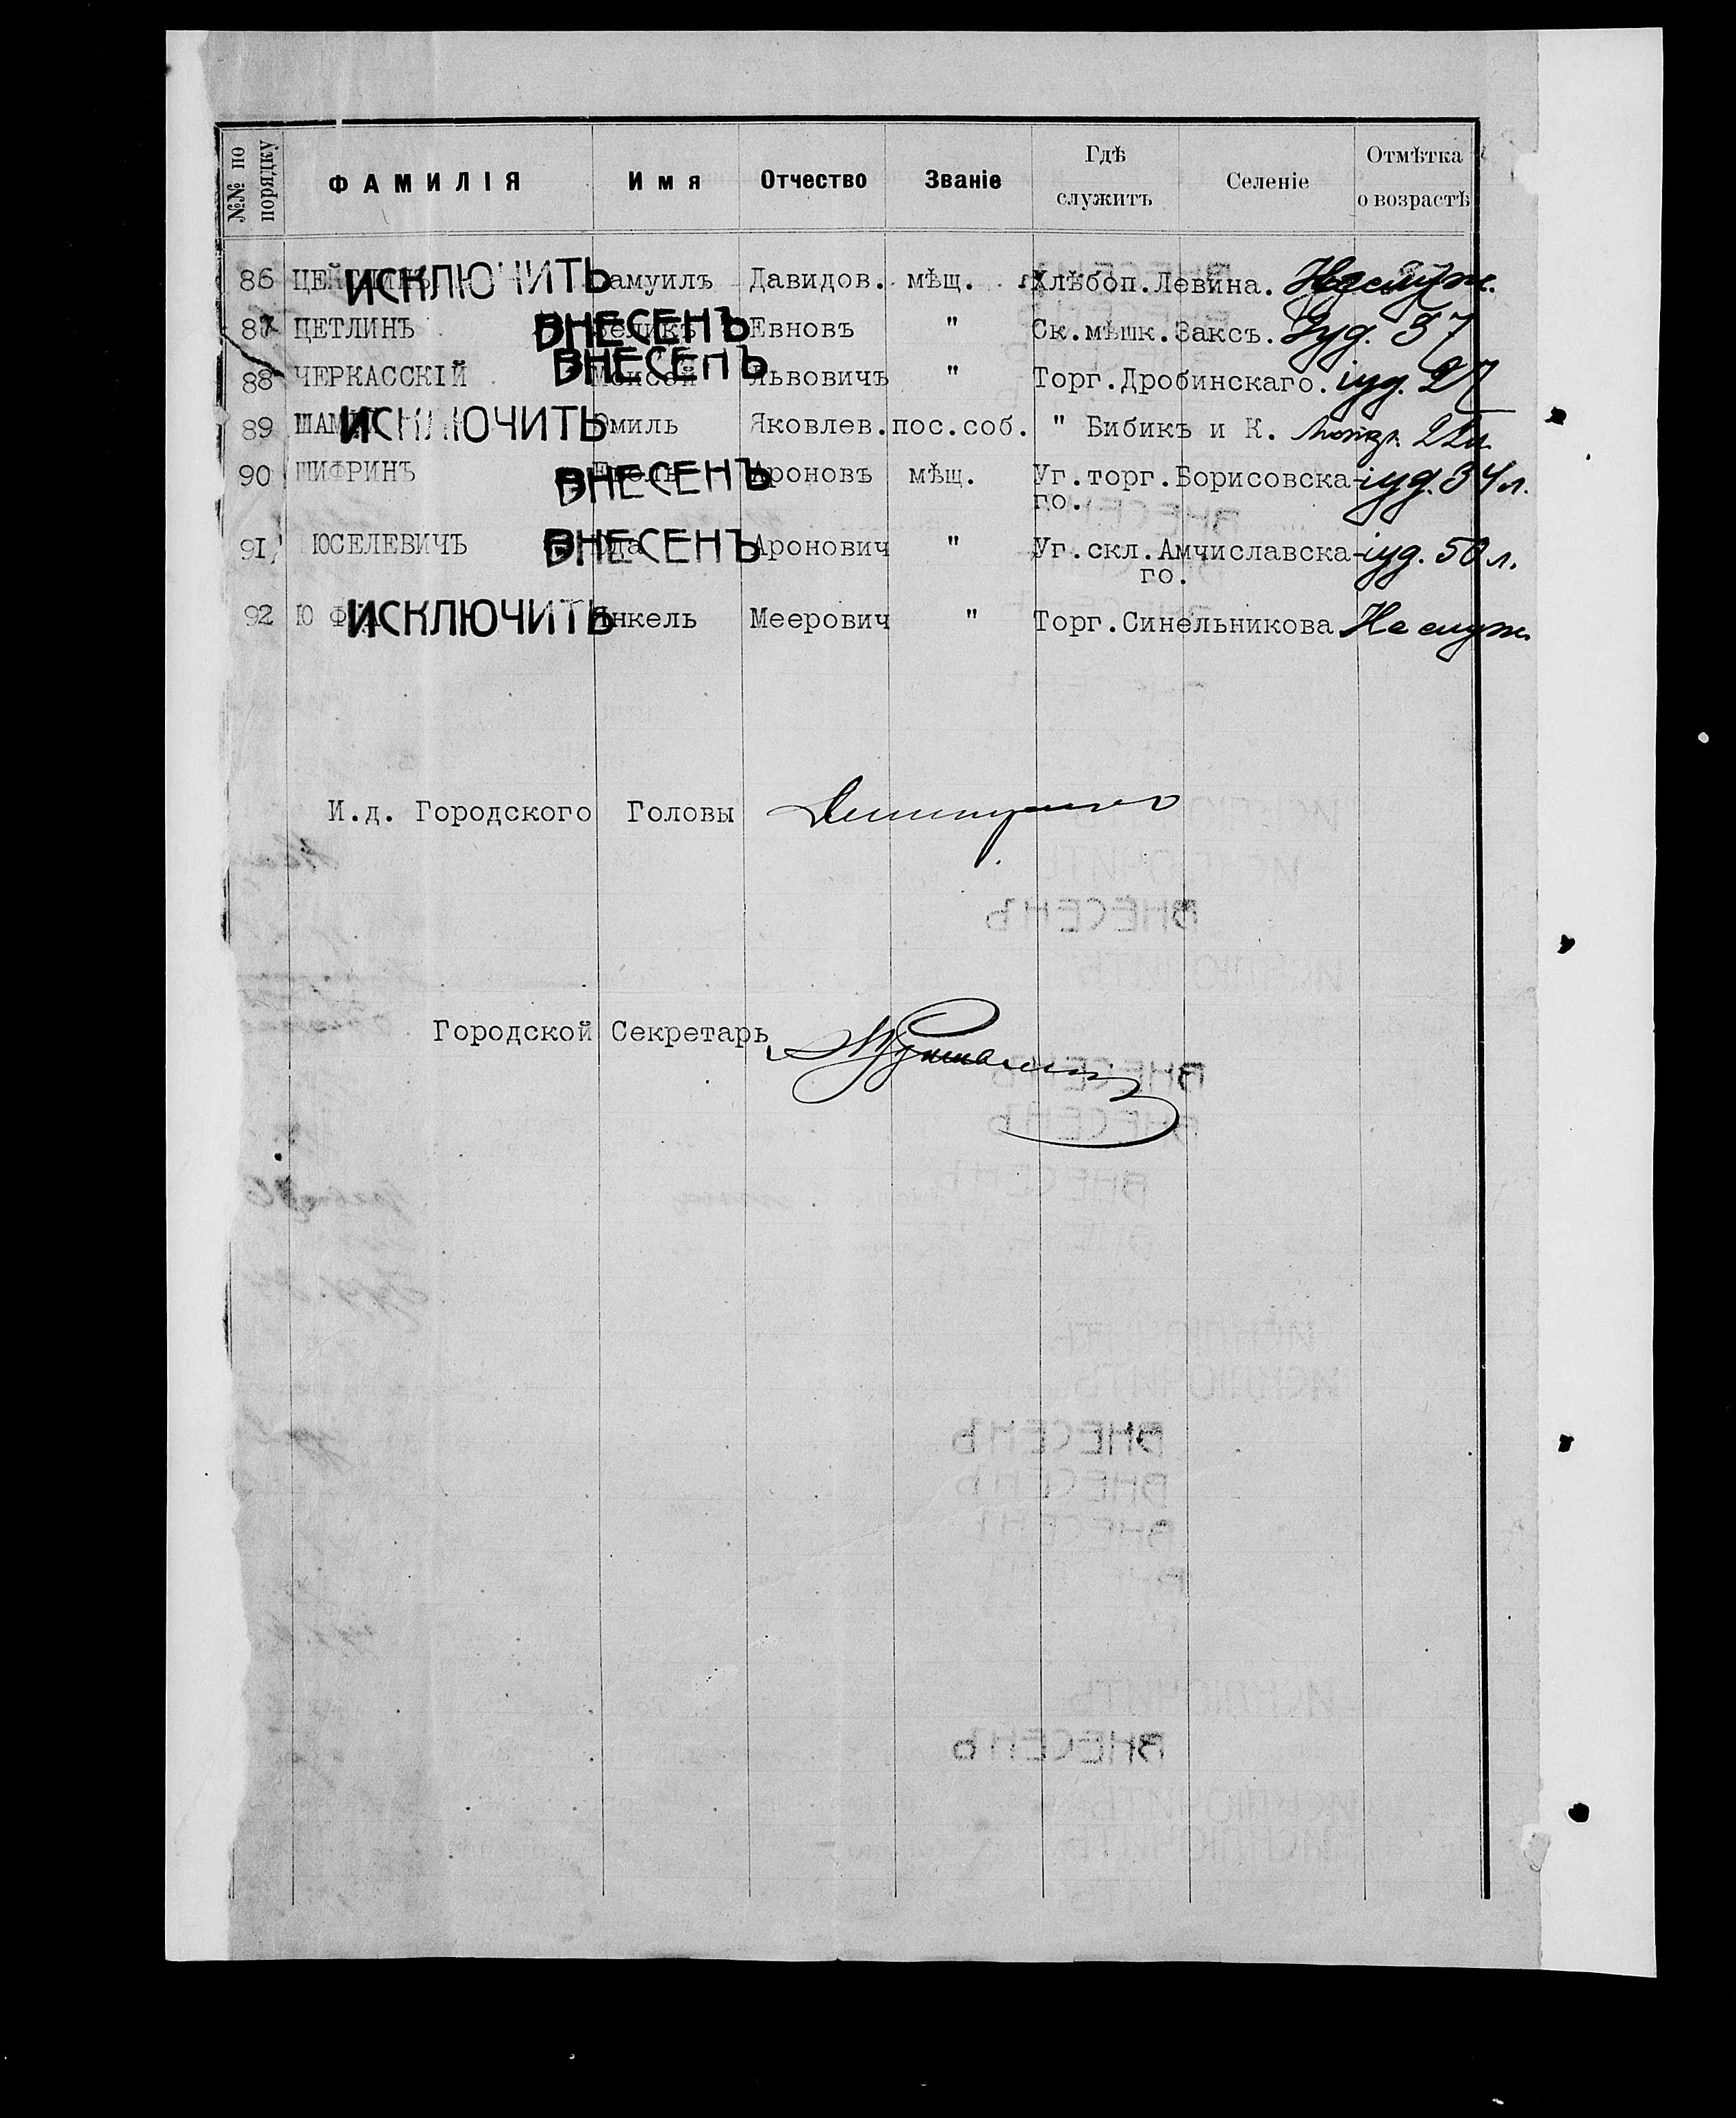 №№ по порядку ФАМИЛІЯ Имя Отчество Званіе Гдѣ служитъ Селеніе Отмѣтка о возрастѣ
86 ИСКЛЮЧИТЬ Самуилъ Давидов. мѣщ. Хлѣбоп.Левина. Не служ.
87 ЦЕТЛИНЪ ВНЕСЕНЪ Евновъ " Ск.мѣшк.Заксъ. Іуд. 37
88 ЧЕРКАССКІЙ ВНЕСЕНЪ Моисей Львовичъ " Торг.Дробинскаго. іуд. 27
89 ИСКЛЮЧИТЬ Эмиль Яковлев. пос.соб. " Бибикъ и К.
90 ШИФРИНЪ ВНЕСЕНЪ Ароновъ мѣщ. Уг.торг.Борисовска- іуд. 34 л.
го.
91 ЮСЕЛЕВИЧЪ ВНЕСЕНЪ Аронович " Уг.скл.Амчиславска- іуд. 50 л.
го.
92 ИСКЛЮЧИТЬ Янкель Меерович " Торг.Синельникова Не служ.
И.д. Городского Головы
Городской Секретарь